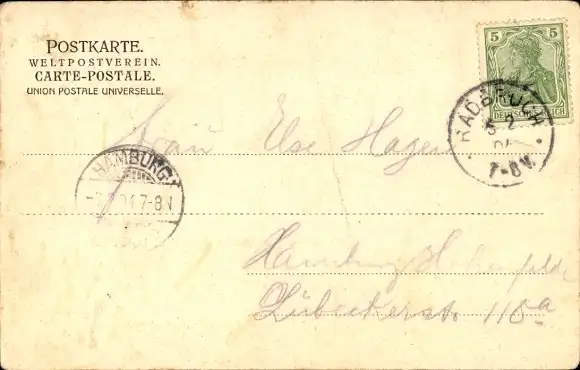 POSTKARTE.
WELTPOSTVEREIN.
CARTE-POSTALE.
UNION POSTALE UNIVERSELLE.
5 5
DEUTSCHES REICH
RADBRUCH
5 2
04
7-8 V.
HAMBURG
04 7-8 V
Frau Else Hagen
Hamburg Hohenfelde
Lübeckerstr. 110a